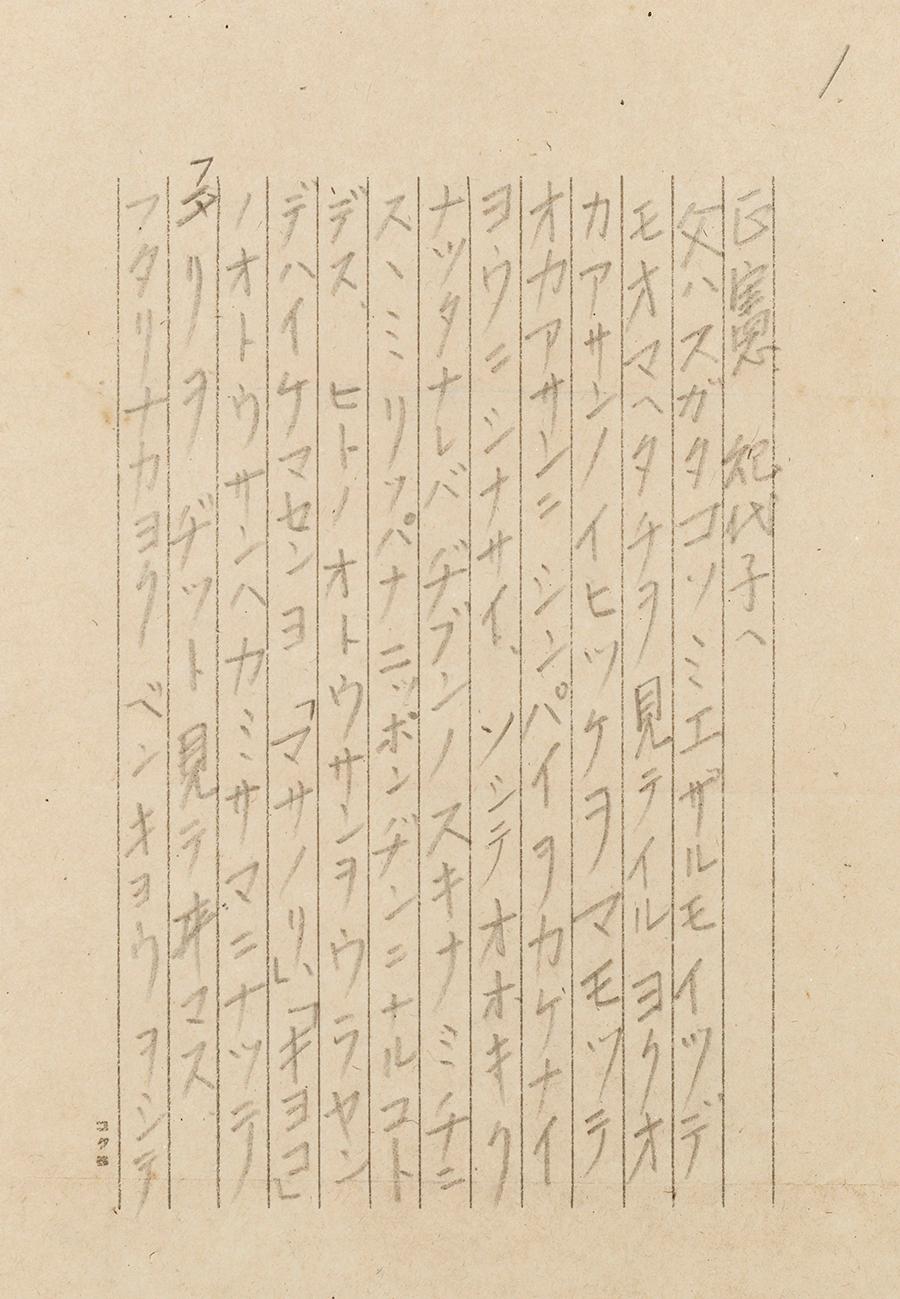 1
正憲　紀代子へ
父ハスガタコソミエザルモイツデ
モオマヘタチヲ見テイルヨクオ
カアサンノイヒツケヲマモツテ
オカアサンニシンパイヲカケナイ
ヨウニシナサイ、ソシテオオキク
ナツタナレバヂブンノスキナミチニ
スヽミリツパナニッポンヂンニナルコト
デス、ヒトノオトウサンヲウラヤン
デハイケマセンヨ「マサノリ」、「キヨコ」
ノオトウサンハカミサマニナツテ
フタリヲヂット見テヰマス
フタリナカヨクベンキヨウヲシテ